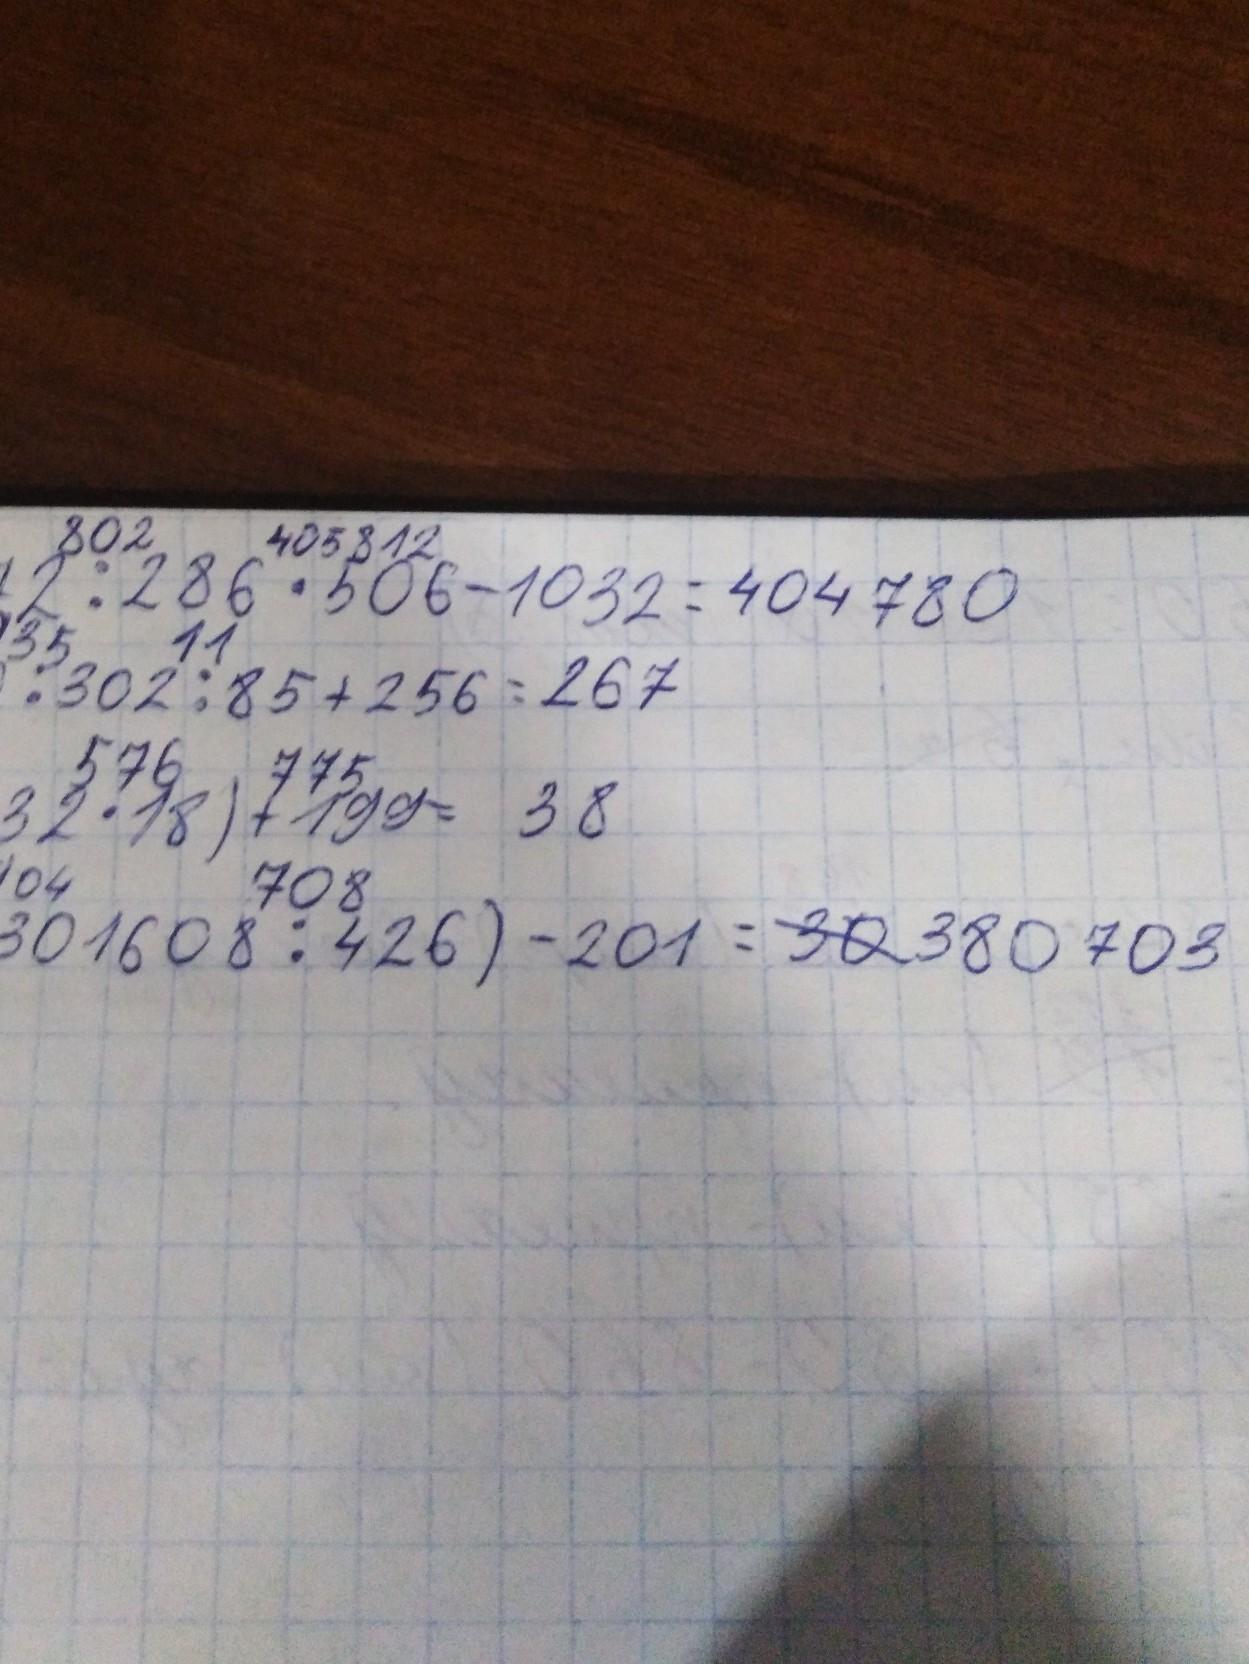 802 405812
2:286·506-1032=404780
35 11
:302:85+256=267
576 775
32·18)+199= 38
104 708
301608:426)-201=30380703